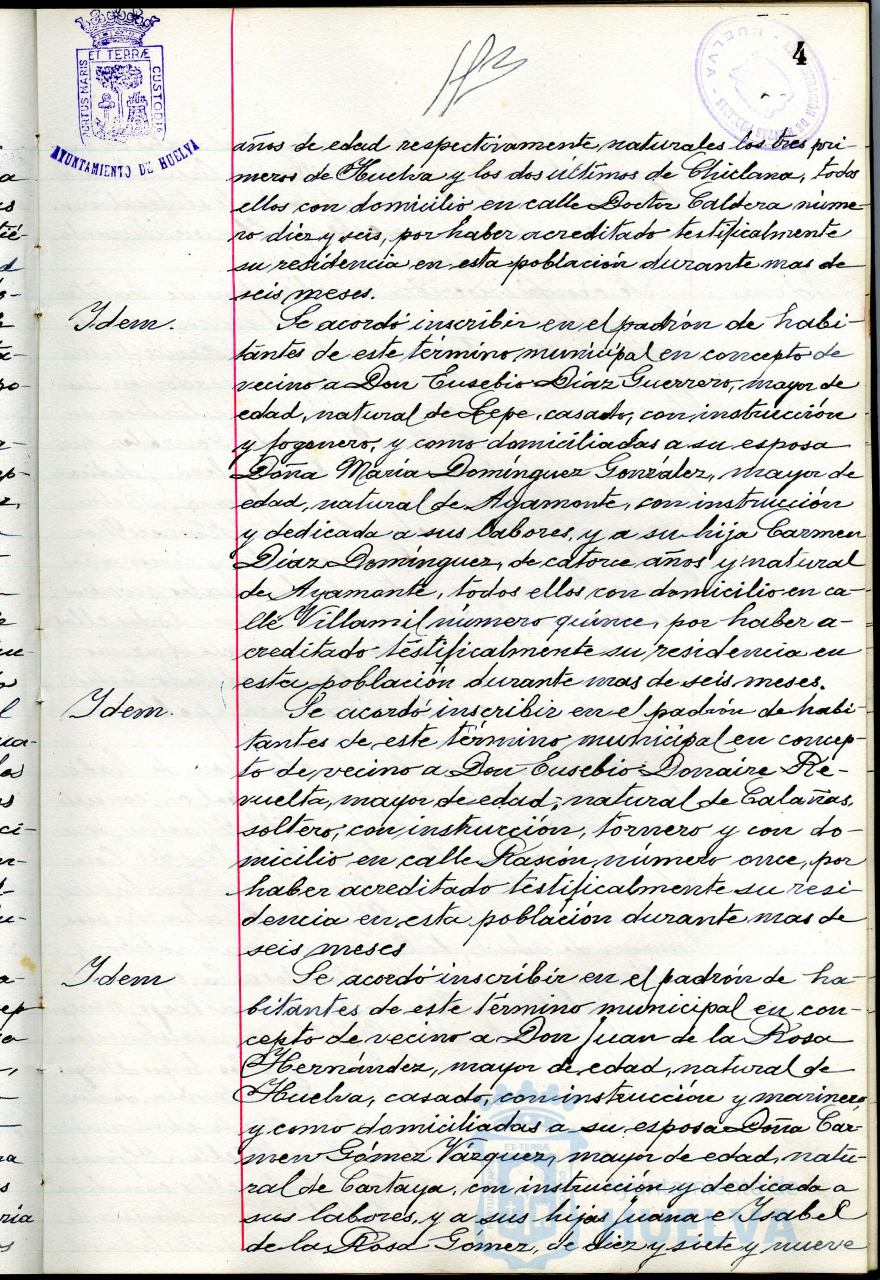 4
ET TERRÆ
PORTUS MARIS
CUSTODIA
AYUNTAMIENTO DE HUELVA
HUELVA
años de edad respectivamente, naturales los tres pri-
meros de Huelva y los dos últimos de Chiclana, todos
ellos con domicilio en calle Doctor Caldera núme-
ro diez y seis, por haber acreditado testificalmente
su residencia en esta población durante mas de
seis meses.
Idem. Se acordó inscribir en el padrón de habi-
tantes de este término municipal en concepto de
vecino a Don Eusebio Díaz Guerrero, mayor de
edad, natural de Lepe, casado, con instrucción
y fogonero, y como domiciliadas a su esposa
Doña María Domínguez González, mayor de
edad, natural de Ayamonte, con instrucción
y dedicada a sus labores, y a su hija Carmen
Díaz Domínguez, de catorce años y natural
de Ayamonte, todos ellos con domicilio en ca-
lle Villamil número quince, por haber a-
creditado testificalmente su residencia en
esta población durante mas de seis meses.
Idem. Se acordó inscribir en el padrón de habi-
tantes de este término municipal en concep-
to de vecino a Don Eusebio Donaire Re-
vuelta, mayor de edad, natural de Calañas,
soltero, con instrucción, tornero y con do-
micilio en calle Rascón, número once, por
haber acreditado testificalmente su resi-
dencia en esta población durante mas de
seis meses
Idem Se acordó inscribir en el padrón de ha-
bitantes de este término municipal en con-
cepto de vecino a Don Juan de la Rosa
Hernández, mayor de edad, natural de
Huelva, casado, con instrucción y marinero
y como domiciliadas a su esposa Doña Car-
men Gómez Vázquez, mayor de edad, natu-
ral de Cartaya, con instrucción y dedicada a
sus labores, y a sus hijas Juana e Isabel
de la Rosa Gomez, de diez y siete y nueve
Ayuntamiento de
HUELVA